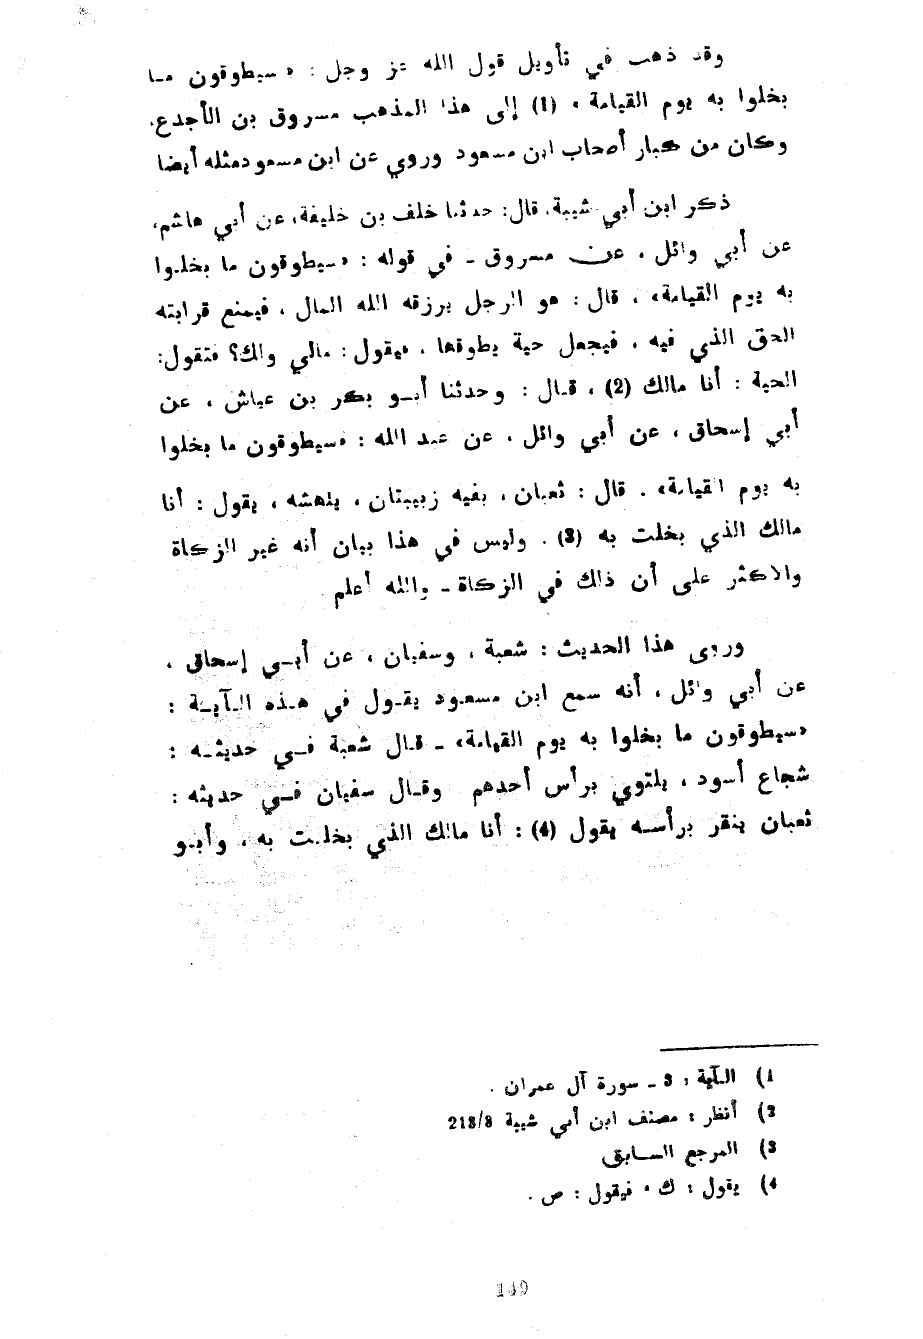 وقد ذهب في تأويل قول الله عز وجل : «سيطوقون ما
بخلوا به يوم القيامة» (1) إلى هذا المذهب مسروق بن الأجدع،
وكان من كبار أصحاب ابن مسعود وروي عن ابن مسعود مثله أيضا
ذكر ابن أبي شيبة، قال: حدثنا خلف بن خليفة، عن أبي هاشم،
عن أبي وائل ، عن مسروق - في قوله : «سيطوقون ما بخلوا
به يوم القيامة» ، قال : هو الرجل يرزقه الله المال ، فيمنع قرابته
الحق الذي فيه ، فيجعل حية يطوقها ، فيقول : مالي ولك؟ فتقول:
الحية : أنا مالك (2) ، قال : وحدثنا أبو بكر بن عياش ، عن
أبي إسحاق ، عن أبي وائل ، عن عبد الله : «سيطوقون ما بخلوا
به يوم القيامة» . قال : ثعبان ، بفيه زبيبتان ، ينهشه ، يقول : أنا
مالك الذي بخلت به (3) . وليس في هذا بيان أنه غير الزكاة
والاكثر على أن ذلك في الزكاة - والله أعلم
وروى هذا الحديث : شعبة ، وسفيان ، عن أبي إسحاق ،
عن أبي وائل ، أنه سمع ابن مسعود يقول في هذه الآية :
«سيطوقون ما بخلوا به يوم القيامة» - قال شعبة في حديثه :
شجاع أسود ، يلتوي برأس أحدهم وقال سفيان في حديثه :
ثعبان ينقر برأسه يقول (4) : أنا مالك الذي بخلت به ، وأبو
1) الآية : 3 - سورة آل عمران .
2) أنظر : مصنف ابن أبي شيبة 213/3
3) المرجع السابق
4) يقول : ك ، فيقول : ص .
149